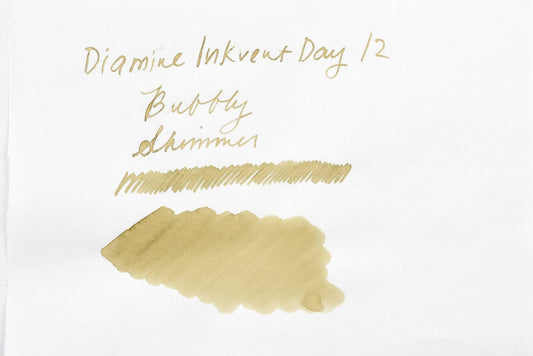 Diamine Inkvent Day 12
Bubbly
Shimmer